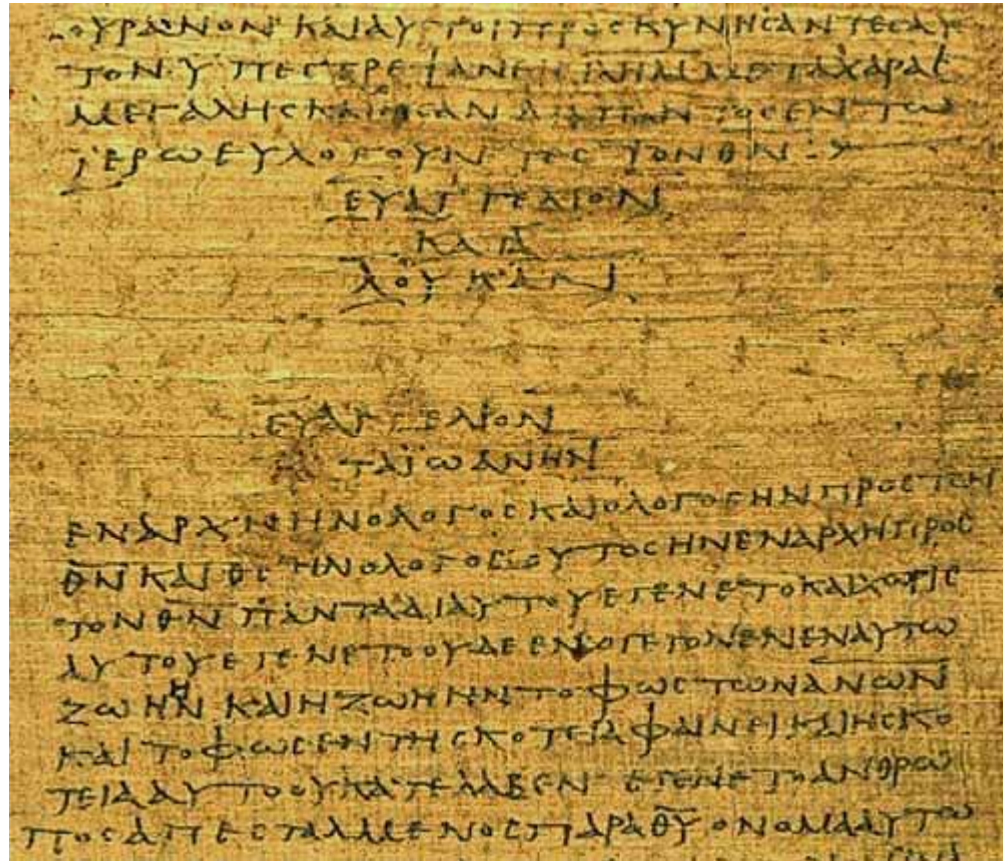 ΟΥΡΑΝΟΝΚΑΙΑΥΤΟΙΠΡΟCΚΥΝΗCΑΝΤΕCΑΥ
ΤΟΝΥΠΕCΤΡΕΨΑΝΕΙCΙ̅Λ̅Η̅Μ̅ΜΕΤΑΧΑΡΑC
ΜΕΓΑΛΗCΚΑΙΗCΑΝΔΙΑΠΑΝΤΟCΕΝΤΩ
ΪΕΡΩΕΥΛΟΓΟΥΝΤΕCΤΟΝΘ̅Ν̅:>
ΕΥΑΓΓΕΛΙΟΝ
ΚΑΤΑ
ΛΟΥΚΑΝ
ΕΥΑΓΓΕΛΙΟΝ
ΤΑΪΩΑΝΗΝ
ΕΝΑΡΧΗΗΝΟΛΟΓΟCΚΑΙΟΛΟΓΟCΗΝΠΡΟCΤΟΝ
Θ̅Ν̅ΚΑΙΘ̅C̅ΗΝΟΛΟΓΟCΟΥΤΟCΗΝΕΝΑΡΧΗΠΡΟC
ΤΟΝΘ̅Ν̅ΠΑΝΤΑΔΙΑΥΤΟΥΕΓΕΝΕΤΟΚΑΙΧΩΡΙC
ΑΥΤΟΥΕΓΕΝΕΤΟΟΥΔΕΕΝΟΓΕΓΟΝΕΝΕΝΑΥΤΩ
ΖΩΗΗΝΚΑΙΗΖΩΗΗΝΤΟΦΩCΤΩΝΑ̅Ν̅Ω̅Ν̅
ΚΑΙΤΟΦΩCΕΝΤΗCΚΟΤΕΙΑΦΑΙΝΕΙΚΑΙΗCΚΟ
ΤΕΙΑΑΥΤΟΟΥΚΑΤΕΛΑΒΕΝΕΓΕΝΕΤΟΑΝΘΡΩ
ΠΟCΑΠΕCΤΑΛΜΕΝΟCΠΑΡΑΘ̅Υ̅ΟΝΟΜΑΑΥΤΩ